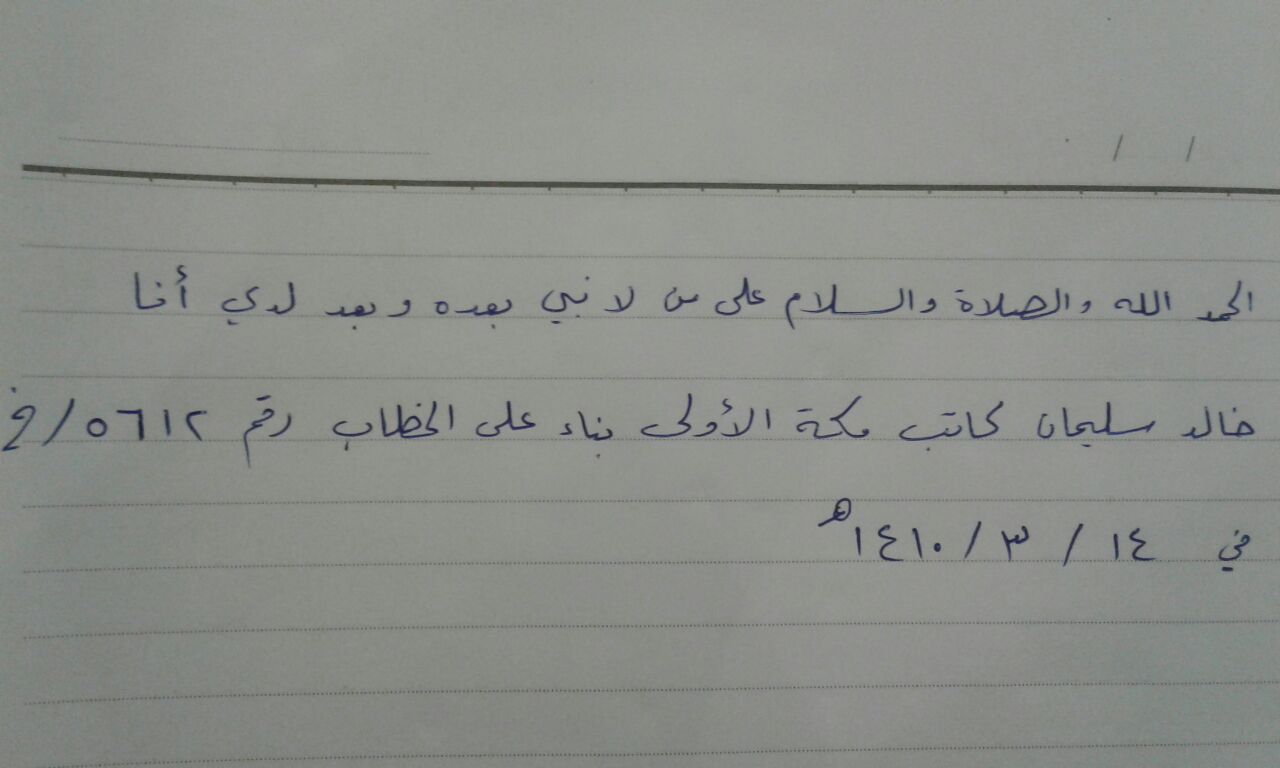 / /
الحمد الله والصلاة والسلام على من لا نبي بعده وبعد لدي أنا
خالد سليمان كاتب مكة الأولى بناء على الخطاب رقم ٥٦١٢/خ
في ١٤ / ٣ / ١٤١٠هـ